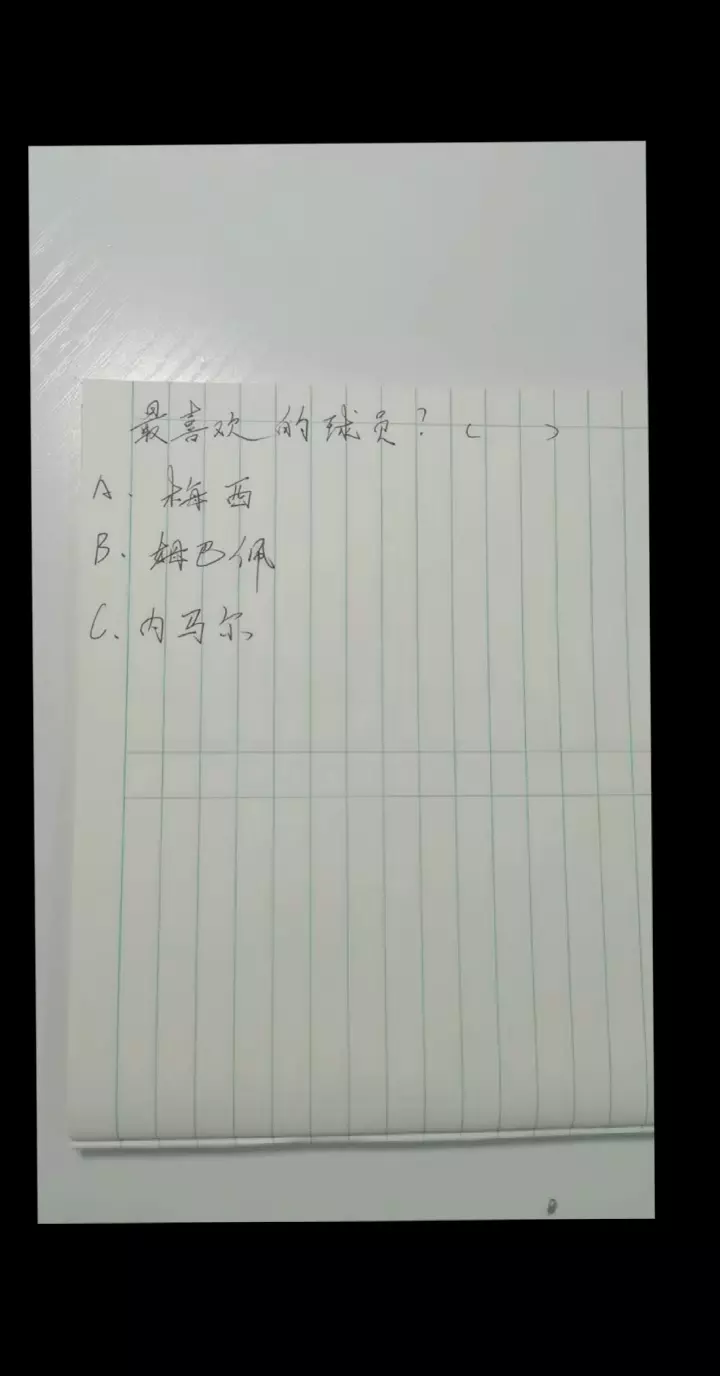 最喜欢的球员？（ ）
A. 梅西
B. 姆巴佩
C. 内马尔